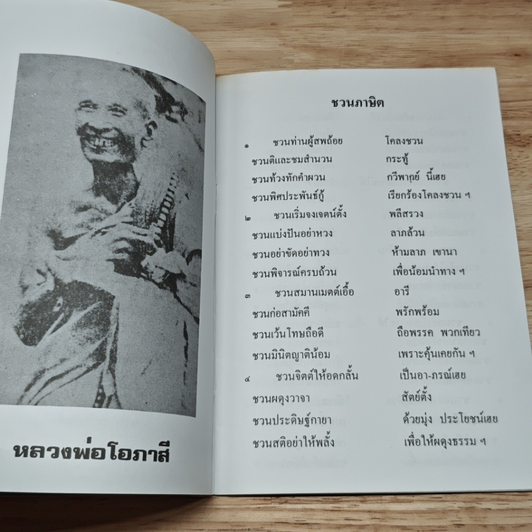 หลวงพ่อโอภาสี
ชวนภาษิต
๑ ชวนท่านผู้สพถ้อย โคลงชวน
ชวนติและชมสำนวน กระทู้
ชวนท้วงทักคำผวน กวีพากย์ นี้เฮย
ชวนพิศประพันธ์กู้ เรียกร้องโคลงชวน ฯ
๒ ชวนเริ่มจงเจตน์ตั้ง พลีสรวง
ชวนแบ่งปันอย่าหวง ลาภล้วน
ชวนอย่าขัดอย่าทวง ห้ามลาภ เขานา
ชวนพิจารณ์ครบถ้วน เพื่อน้อมนำทาง ฯ
๓ ชวนสมานเมตต์เอื้อ อารี
ชวนก่อสามัคคี พรักพร้อม
ชวนเว้นโทษถือดี ถือพรรค พวกเทียว
ชวนมินิตญาติน้อม เพราะคุ้นเคยกัน ฯ
๔ ชวนจิตต์ให้อดกลั้น เป็นอา-ภรณ์เฮย
ชวนผดุงวาจา สัตย์ตั้ง
ชวนประดิษฐ์กายา ด้วยมุ่ง ประโยชน์เฮย
ชวนสติอย่าให้พลั้ง เพื่อให้ผดุงธรรม ฯ